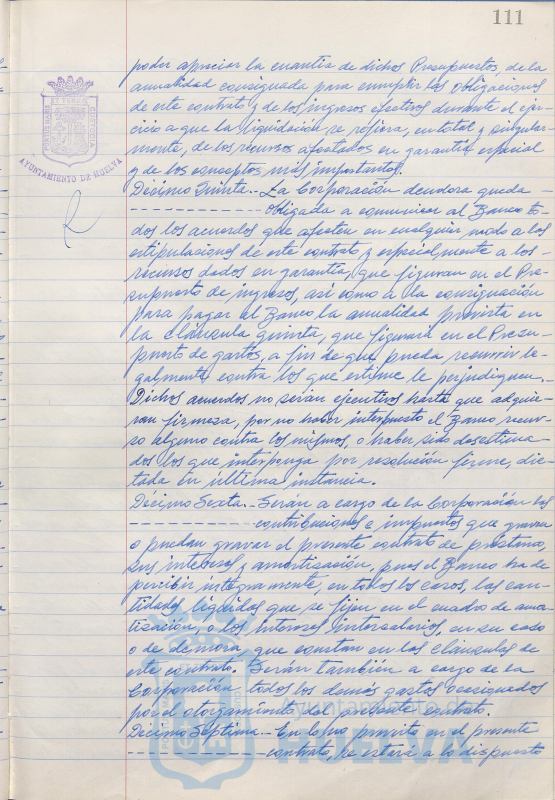 111
AYUNTAMIENTO DE HUELVA
poder apreciar la cuantía de dichos Presupuestos, de la
anualidad consignada para cumplir las obligaciones
de este contrato y de los ingresos efectivos durante el ejer-
cicio a que la liquidación se refiera, en total y singular-
mente, de los recursos afectados en garantía especial
y de los conceptos más importantes.
Décimo Quinta.- La Corporación deudora queda
obligada a comunicar al Banco to-
dos los acuerdos que afecten en cualquier modo a las
estipulaciones de este contrato y especialmente a los
recursos dados en garantía, que figuran en el Pre-
supuesto de ingresos, así como a la consignación
para pagar al Banco la anualidad prevista en
la cláusula quinta, que figurará en el Presu-
puesto de gastos, a fin de que pueda recurrir le-
galmente contra los que estime le perjudiquen.
Dichos acuerdos no serán ejecutivos hasta que adquie-
ran firmeza, por no haber interpuesto el Banco recur-
so alguno contra los mismos, o haber sido desestima-
dos los que interponga por resolución firme, dic-
tada en última instancia.
Décimo Sexta.- Serán a cargo de la Corporación las
contribuciones e impuestos que gravan
o puedan gravar el presente contrato de préstamo,
sus intereses y amortización, pues el Banco ha de
percibir íntegramente, en todos los casos, las can-
tidades líquidas que se fijen en el cuadro de amor-
tización, o los intereses intercalarios, en su caso
o de demora que constan en las cláusulas de
este contrato. Serán también a cargo de la
Corporación todos los demás gastos ocasionados
por el otorgamiento del presente contrato.
Décimo Séptima.- En lo no previsto en el presente
contrato, se estará a lo dispuesto
Ayuntamiento de
HUELVA